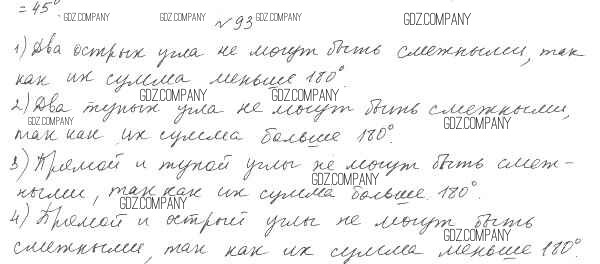 = 45°.
GDZ.COMPANY GDZ.COMPANY GDZ.COMPANY GDZ.COMPANY
№ 93
1) Два острых угла не могут быть смежными, так
как их сумма меньше 180°.
GDZ.COMPANY GDZ.COMPANY
2) Два тупых угла не могут быть смежными,
GDZ.COMPANY GDZ.COMPANY
так как их сумма больше 180°.
3) Прямой и тупой углы не могут быть смеж-
GDZ.COMPANY
ными, так как их сумма больше 180°.
GDZ.COMPANY
4) Прямой и острый углы не могут быть
GDZ.COMPANY
смежными, так как их сумма меньше 180°.